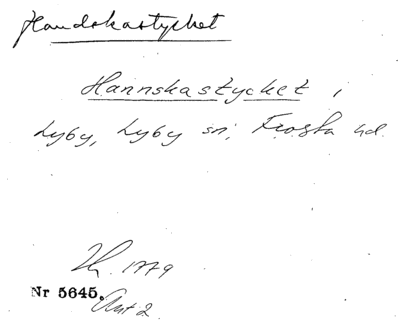 Handskastycket
Hannskastycket i
Lyby, Lyby sn, Frosta hd.
1779
Nr 5645.
Akt 2